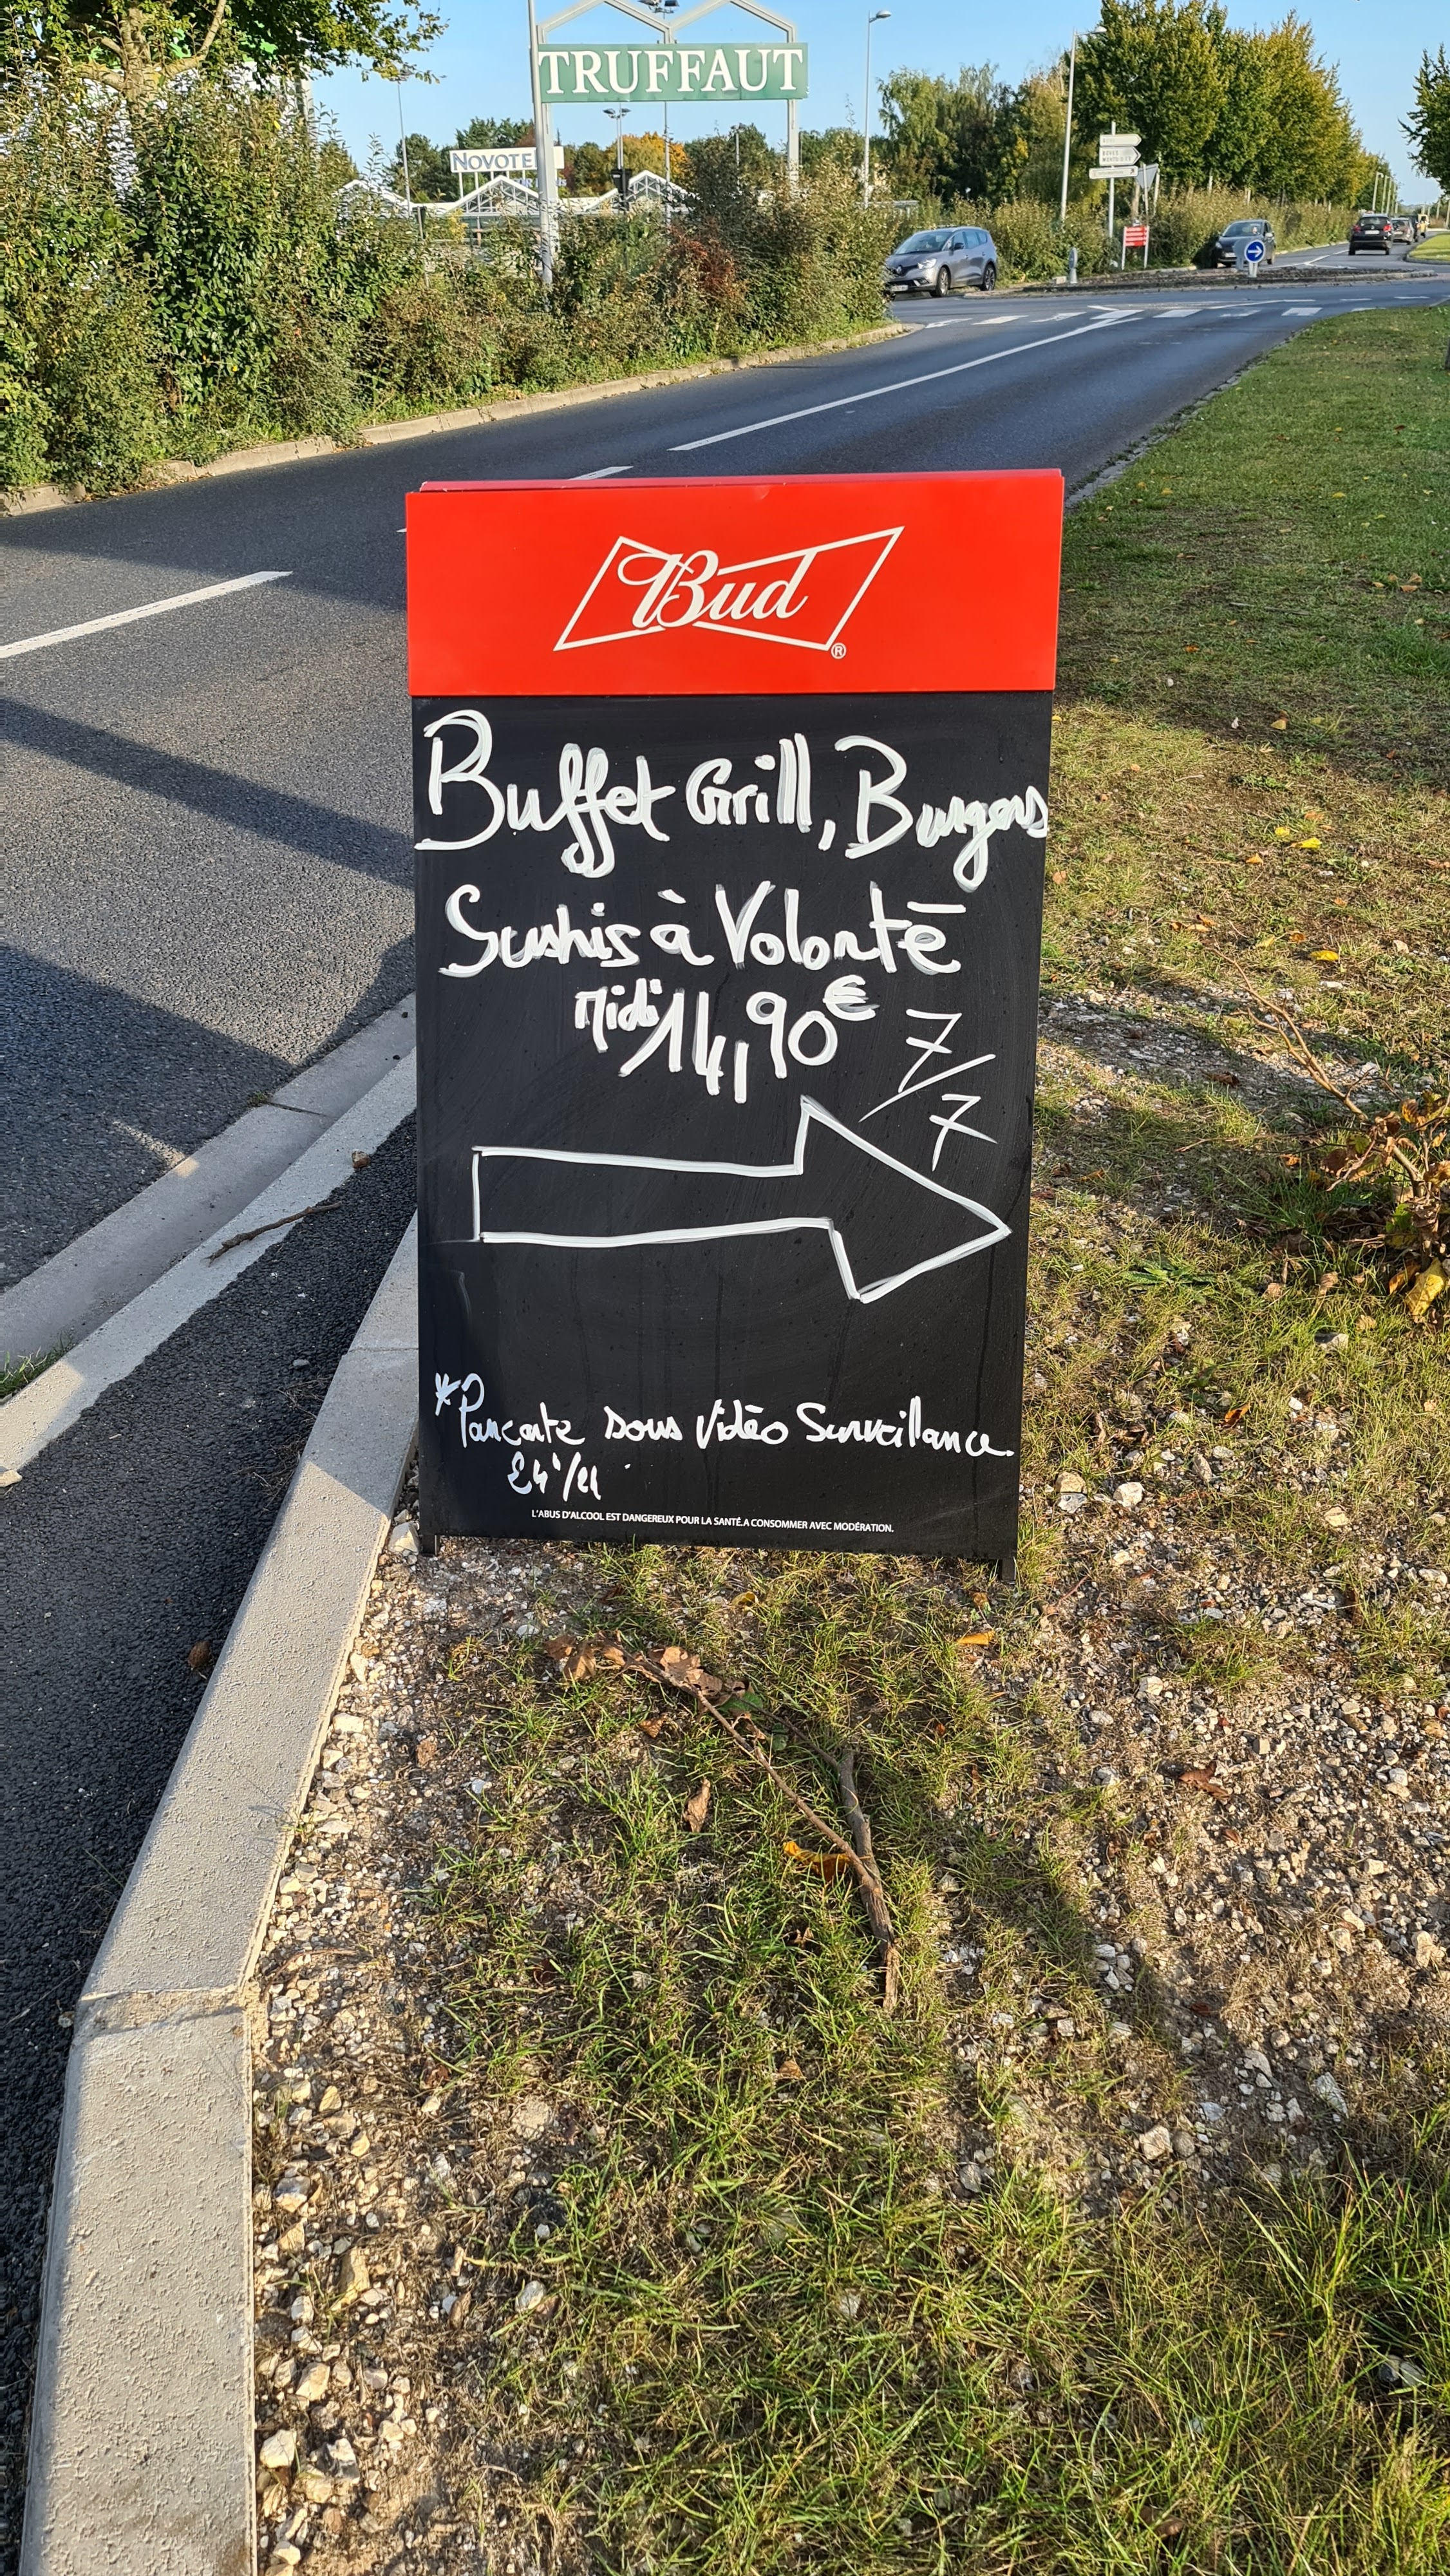 TRUFFAUT
NOVOTEL
Bud®
Buffet Grill, Burgers
Sushis à Volonté
Midi 14,90€
7/7
*Pancarte sous Vidéo Surveillance
24h/24
L'ABUS D'ALCOOL EST DANGEREUX POUR LA SANTÉ.A CONSOMMER AVEC MODÉRATION.